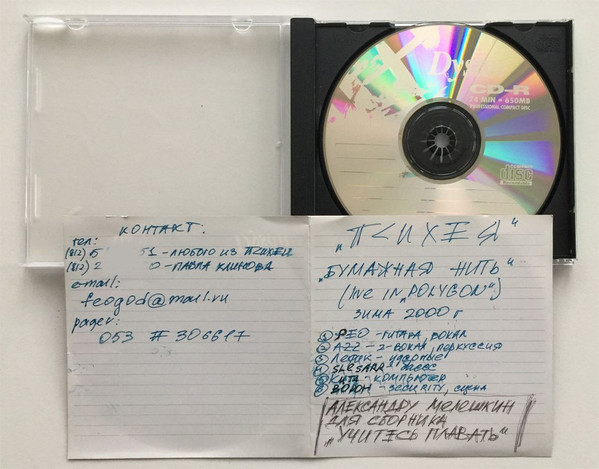 Dys
CD-R
74 MIN • 650MB
PROFESSIONAL COMPACT DISC
COMPACT
disc
Recordable
КОНТАКТ.
тел:
(812) 5 51 - ЛЮБОГО ИЗ ПСИХЕИ
(812) 2 0 - ПАВЛА
e-mail:
feogod@mail.ru
pager:
053 # 306617
„ПСИХЕЯ“
„БУМАЖНАЯ НИТЬ“
(live in „POLYGON“)
ЗИМА 2000 г
① ФЕО - ГИТАРА, ВОКАЛ
② AZZ - 2-ВОКАЛ, ПЕРКУССИЯ
③ Ледик - ударные
④ SLESARR - басс
⑤ КИТА - КОМПЬЮТЕР
⑥ ВОРОН - SECURITY, СЦЕНА
АЛЕКСАНДРУ МЕЛЕШКИН
ДЛЯ СБОРНИКА
„УЧИТЕСЬ ПЛАВАТЬ“